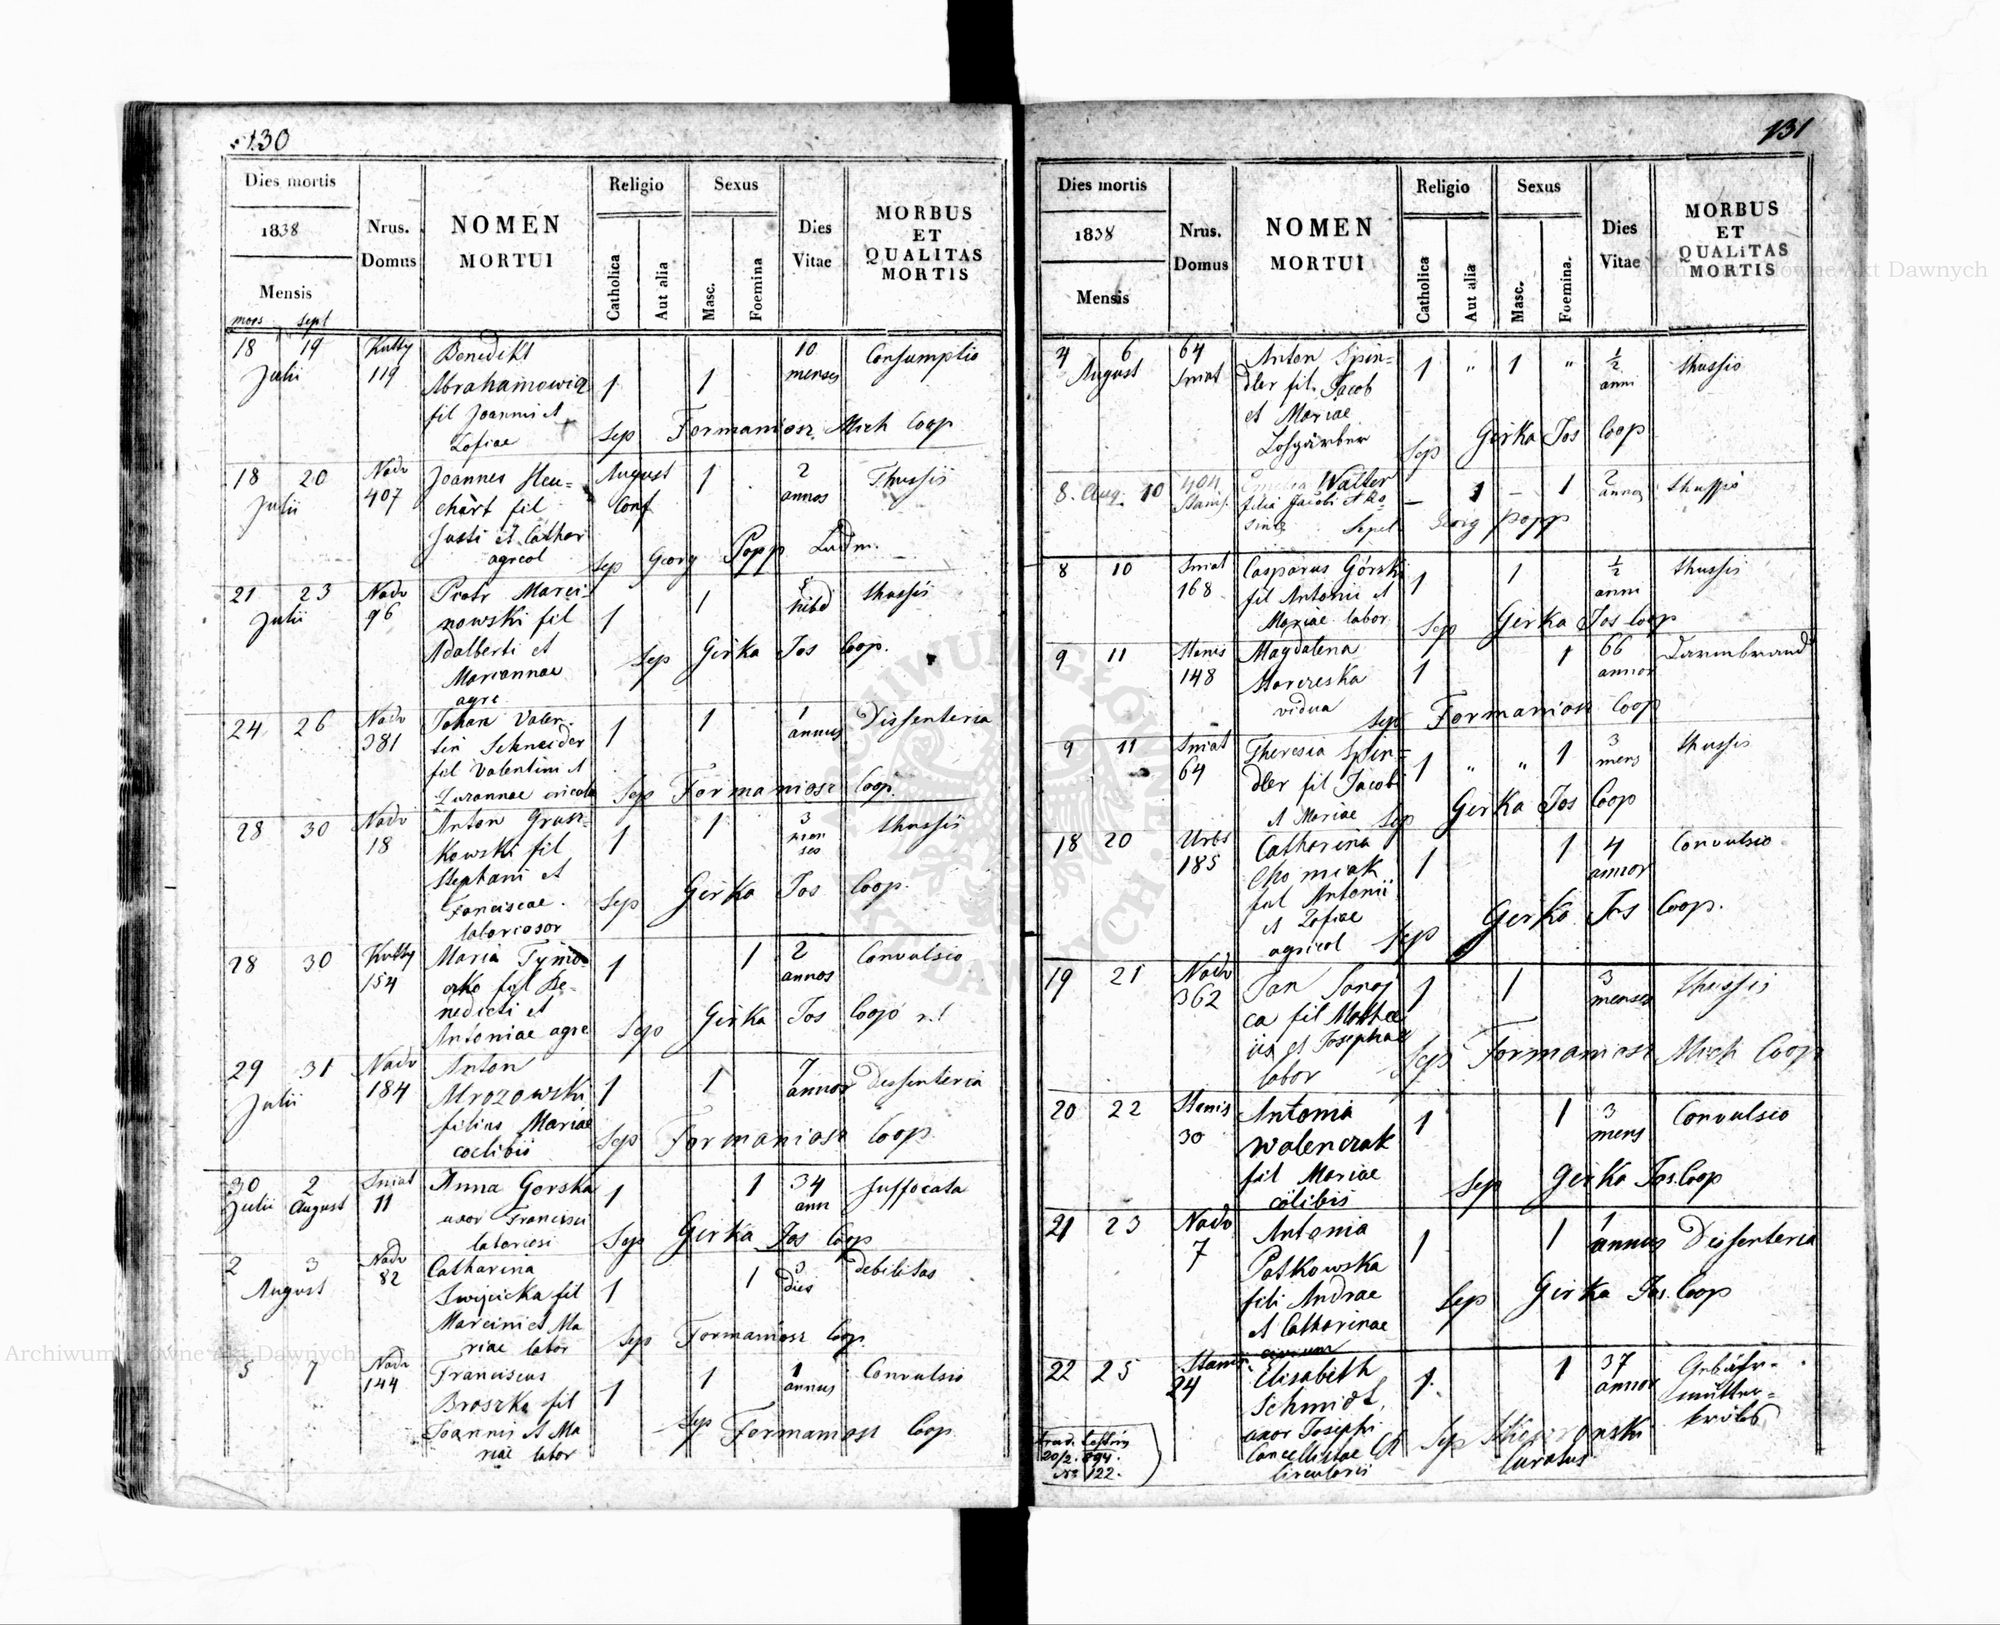 130
Dies mortis
1838
Mensis
mors sept
Nrus. Domus
NOMEN MORTUI
Religio
Catholica
Aut alia
Sexus
Masc.
Foemina
Dies Vitae
MORBUS ET QUALITAS MORTIS
18 19 Kutty Benedikt 10 Consumptio
Julii 119 Abrahamowicz 1 1 menses
fil Joannis et
Zofiae Sep Formaniosz Mich Coop
18 20 Nadv Joannes Heu= August 1 2 Thussis
Julii 407 chart fil Conf annos
Justi et Cathar
agricol Sep Georg Popp Ludm.
21 23 Nadv Piotr Marci- 1 thussis
Julii 96 nowski fil 1
Adalberti et Sep Girka Jos Coop.
Mariannae
agre
24 26 Nadv Johan Valen- 1 1 1 Dissenteria
381 tin Schneider annus
fil Valentini et
Zuzannae Sep Formaniosz Coop.
28 30 Nadv Anton Grusz- 1 1 3 thussis
18 kowski fil menses
Stephani et
Franciscae Sep Girka Jos Coop.
laboriosor
28 30 Kutty Maria Tymo- 1 1 2 Convulsio
154 fil Be- annos
nedicti et
Antoniae agre Sep Girka Jos Coop
29 31 Nadv Anton 1 1 7 Dissenteria
Julii 184 Mrozowski annos
filius Mariae
coelibis Sep Formaniosz Coop
30 2 Sniat Anna Gorska 1 1 34 Suffocata
Julii August 11 uxor Francisci ann
laboriosi Sep Girka Jos Coop
2 3 Nadv Catharina 1 1 3 debilitas
August 82 fil dies
Marcini et Ma
riae labor Sep Formaniosz Coop.
5 7 Nadv Franciscus 1 1 1 Convulsio
144 Broszka fil annus
Joannis et Ma
riae labor Sep Formaniosz Coop
131
Dies mortis
1838
Mensis
Nrus. Domus
NOMEN MORTUI
Religio
Catholica
Aut alia
Sexus
Masc.
Foemina.
Dies Vitae
MORBUS ET QUALITAS MORTIS
4 6 64 Anton Spin= 1 " 1 " ½ thussis
August Sniat dler fil. Jacob anni
et Mariae
Sep Girka Jos Coop
8. Aug. 10 404 Emilia Walter — 1 — 1 2 thussis
Stanis. filia Jacobi et Ro annos
sinae Sepel. Georg Popp
8 10 Sniat Casparus Górski 1 1 ½ thussis
168 fil Antonii et anni
Mariae labor Sep Girka Jos Coop
9 11 Stanis Magdalena 1 1 66 Darmbrand
148 annor
vidua Sep Formaniosz Coop
9 11 Sniat Theresia Spin= 1 " " 1 3 thussis
64 dler fil Jacobi mens
et Mariae Sep Girka Jos Coop
18 20 Urbs Catharina 1 1 4 Convulsio
185 Chomiak annor
fil Antonii
et Zofiae
agricol Sep Girka Jos Coop.
19 21 Nadv Jan 1 1 3 thussis
362 ca fil Mathae menses
i et Josephae
labor Sep Formaniosz Mich Coop
20 22 Stanis Antonia 1 1 3 Convulsio
30 Walenczak mens
fil Mariae
colibis Sep Girka Jos. Coop
21 23 Nadv Antonia 1 1 1 Dissenteria
7 Patkowska annus
fili Andrae
et Catharinae Sep Girka Jos. Coop
22 25 Stanis. Elisabeth 1 1 37 Gebähr-
24 Schmidt, annor mutter-
uxor Josephi krebs
Cancellistae
Circularis Sep Curatus
20/2. 894.
No 122.
ARCHIWUM GŁÓWNE AKT DAWNYCH
Archiwum Główne Akt Dawnych
Archiwum Główne Akt Dawnych